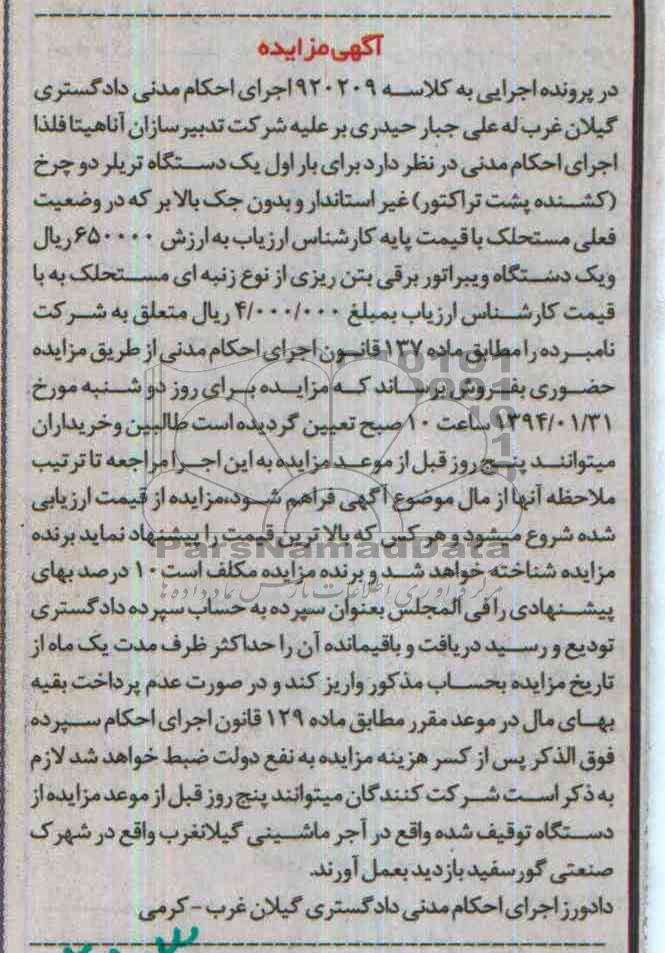 آگهی مزایده
در پرونده اجرایی به کلاسه ۹۲۰۲۰۹ اجرای احکام مدنی دادگستری
گیلان غرب له علی جبار حیدری بر علیه شرکت تدبیر سازان آناهیتا فلذا
اجرای احکام مدنی در نظر دارد برای بار اول یک دستگاه تریلر دو چرخ
(کشنده پشت تراکتور) غیر استاندار و بدون جک بالا بر که در وضعیت
فعلی مستحلک با قیمت پایه کارشناس ارزیاب به ارزش ۶۵۰۰۰۰۰ ریال
ویک دستگاه ویبراتور برقی بتن ریزی از نوع زنبه ای مستحلک به با
قیمت کارشناس ارزیاب بمبلغ ۴/۰۰۰/۰۰۰ ریال متعلق به شرکت
نامبرده را مطابق ماده ۱۳۷ قانون اجرای احکام مدنی از طریق مزایده
حضوری بفروش برساند که مزایده برای روز دو شنبه مورخ
۱۳۹۴/۰۱/۳۱ ساعت ۱۰ صبح تعیین گردیده است طالبین وخریداران
میتوانند پنج روز قبل از موعد مزایده به این اجرا مراجعه تا ترتیب
ملاحظه آنها از مال موضوع آگهی فراهم شود،مزایده از قیمت ارزیابی
شده شروع میشود و هر کس که بالا ترین قیمت را پیشنهاد نماید برنده
ParsNamadData
مزایده شناخته خواهد شد و برنده مزایده مکلف است ۱۰ درصد بهای
مرکز فرآوری اطلاعات پارس نماد داده ها
پیشنهادی را فی المجلس بعنوان سپرده به حساب سپرده دادگستری
تودیع و رسید دریافت و باقیمانده آن را حداکثر ظرف مدت یک ماه از
تاریخ مزایده بحساب مذکور واریز کند و در صورت عدم پرداخت بقیه
بهای مال در موعد مقرر مطابق ماده ۱۲۹ قانون اجرای احکام سپرده
فوق الذکر پس از کسر هزینه مزایده به نفع دولت ضبط خواهد شد لازم
به ذکر است شرکت کنندگان میتوانند پنج روز قبل از موعد مزایده از
دستگاه توقیف شده واقع در آجر ماشینی گیلانغرب واقع در شهرک
صنعتی گورسفید بازدید بعمل آورند.
دادورز اجرای احکام مدنی دادگستری گیلان غرب - کرمی